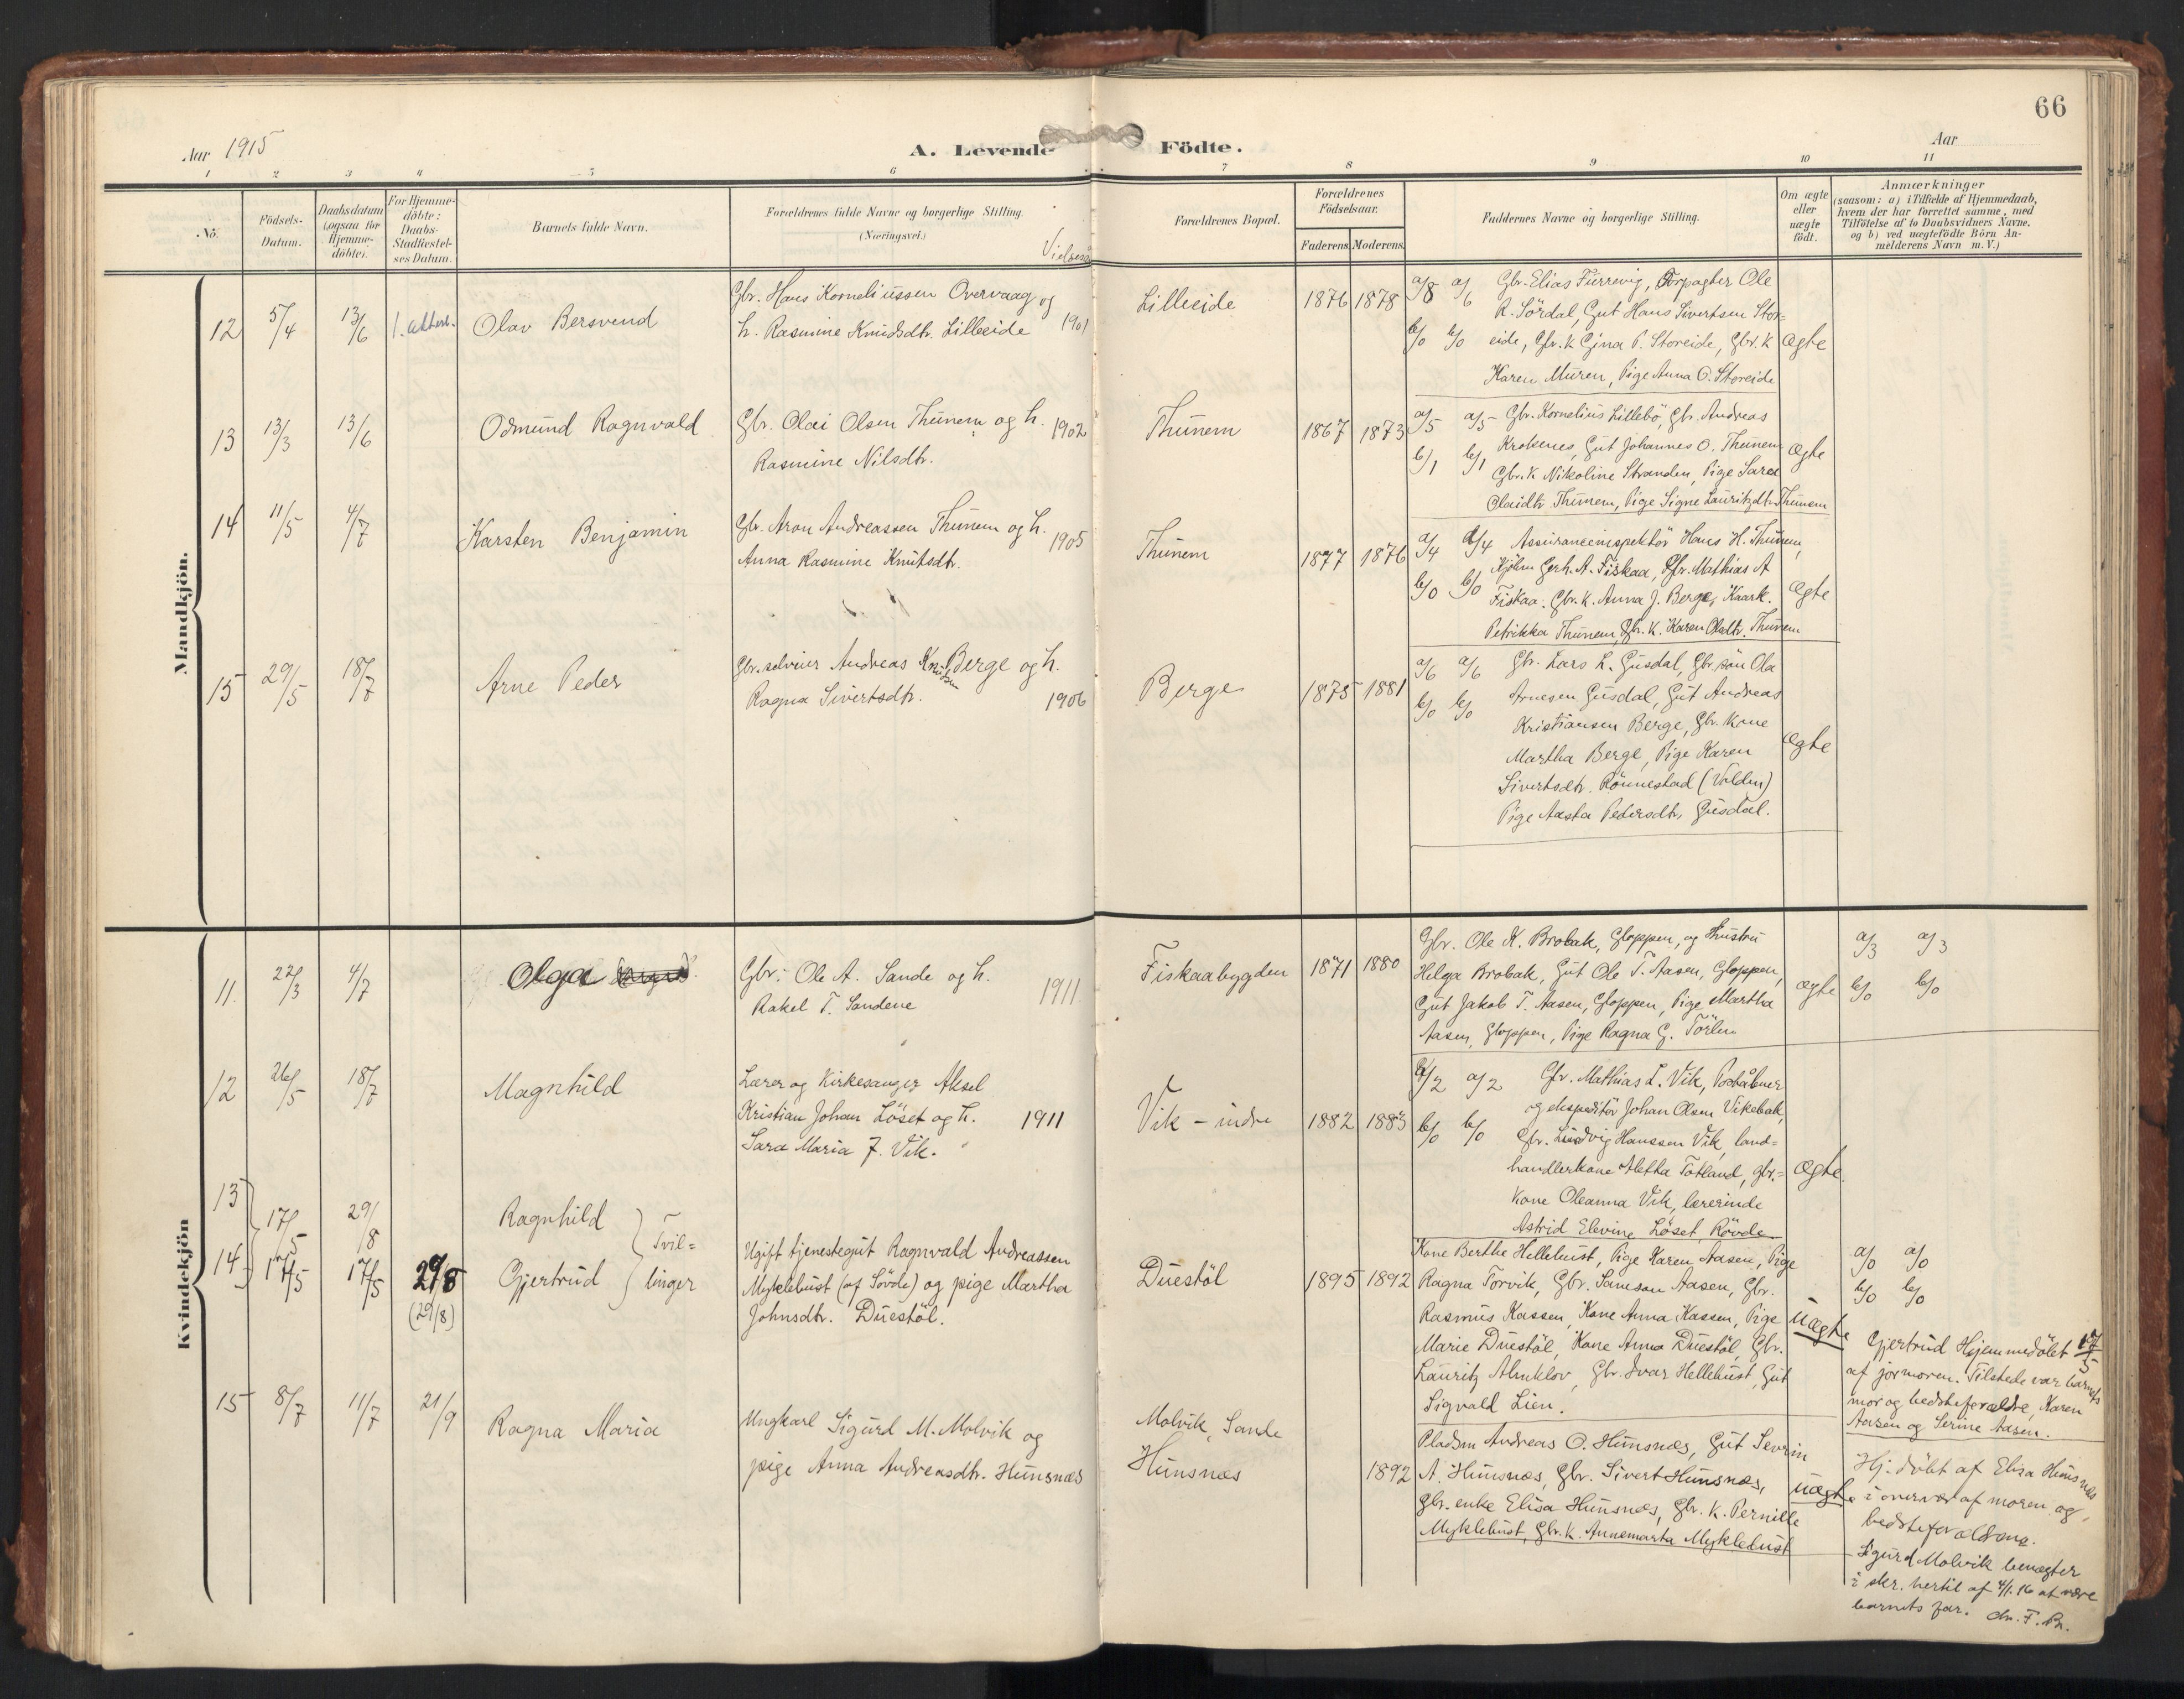 66
Aar 1915
A. Levende Födte.
Aar
1 2 3 4 5 6 7 8 9 10 11
No.
Födsels-Datum.
Daabsdatum (ogsaa for Hjemme-döbte).
For Hjemme-döbte: Daabs-Stadfæstel-ses Datum.
Barnets fulde Navn.
Forældrenes fulde Navne og borgerlige Stilling.
(Næringsvei.)
Forældrenes Bopæl.
Forældrenes Födselsaar.
Faderens. Moderens.
Faddernes Navne og borgerlige Stilling.
Om ægte eller uægte födt.
Anmærkninger
(saasom: a) i Tilfælde af Hjemmedaab, hvem der har forrettet samme, med Tilföielse af to Daabsvidners Navne. og b) ved uægtefödte Börn An-melderens Navn m. V.)
Mandkjön.
12 5/4 13/6 Olav Bersvend
Gbr. Hans Korneliussen Overvaag og
h. Rasmine Knudsdtr. Lilleeide 1901
Lilleeide 1876 1878
a/8 a/6 Gbr. Elias Furrevig, Forpagter Ole
R. Sördal, Gut Hans Sivertsen Stor=
b/0 b/0 eide, Gbr. K Gina P. Storeide, Gbr. K
Karen Muren, Pige Anna O. Storeide
ægte
13 13/3 13/6 Odmund Ragnvald
Gbr. Olai Olsen Thunem og h. 1902
Rasmine Nilsdtr.
Thunem 1867 1873
a/5 a/5 Gbr. Kornelius Lillebö, Gbr. Andreas
Krokenes, Gut Johannes O. Thunem
b/1 b/1 Gbr. K. Nikoline Stranden, Pige Sara
Olaidtr. Thunem, Pige Signe Lauritzdtr. Thunem
ægte
14 11/5 4/7 Karsten Benjamin
Gbr. Aron Andreassen Thunem og h. 1905
Anna Rasmine Knutsdtr.
Thunem 1877 1876
a/4 a/4 Assuranceinspektör Hans H. Thunem,
Gerh. A. Fiskaa, Gbr. Mathias A
b/0 b/0 Fiskaa. Gbr. K. Anna J. Berge, Kaark.
Petrikka Thunem, Gbr. K. Karen Olsdtr. Thunem
ægte
15 29/5 18/7 Arne Peder
Gbr. selveier Andreas Knutsen Berge og h.
Ragna Sivertsdtr. 1906
Berge 1875 1881
a/6 a/6 Gbr. Lars L. Gusdal, Gbr. sön Ola
b/0 b/0 Arnesen Gusdal, Gut Andreas
Kristiansen Berge, Gbr. Kone
Martha Berge, Pige Karen
Sivertsdtr. Rönnestad (Volden)
Pige Aasta Petersdtr. Gusdal.
ægte
Kvindekjön
11. 22/3 4/7 Olga
Gbr. Ole A. Sande og h.
Rakel T. Sandene 1911
Fiskaabygden 1871 1880
Gbr. Ole K. Brobak, Gloppen, og Hustru
Helga Brobak, Gut Ole T. Aasen, Gloppen,
Gut Jakob T. Aasen, Gloppen, Pige Martha
Aasen, Gloppen, Pige Ragna G.
ægte
a/3 a/3
b/0 b/0
12 26/5 18/7 Magnhild
Lærer og Kirkesanger Aksel
Kristian Johan Löset og h. 1911
Sara Maria J. Vik.
Vik - indre 1882 1883
a/2 a/2 Gbr. Mathias L. Vik, Poståbner
og ekspeditör Johan Olsen Vikebak,
b/0 b/0 Gbr. Ludvig Hanssen Vik, land=
handlerkone Aletha Totland, gbr.=
kone Oleanna Vik, lærerinde
Astrid Elevine Löset, Rövde
ægte.
13 17/5 29/8 Ragnhild
14 17/5 17/5 29/8 (29/8) Gjertrud
Tvil=linger
Ugift tjenestegut Ragnvald Andreassen
Myklebust (af Sövde) og pige Martha
Johnsdtr. Duestöl.
Duestöl 1895 1892
Kone Berthe Hellebust, Pige Karen Aasen, Pige
Ragna Torvik, Gbr. Samson Aasen, Gbr.
Rasmus Kassen, Kone Anna Kassen, Pige
Marie Duestöl, Kone Anna Duestöl, Gbr.
Lauritz Almklov, Gbr. Ivar Hellebust, Gut
Sigvald Lien.
Uægte
a/0 a/0
b/0 b/0
Gjertrud Hjemmedöbt 17/5
af jormoren. Tilstede var barnets
mor og bedsteforældre, Karen
Aasen og Serine Aasen.
15 8/7 11/7 21/9 Ragna Maria
Ungkarl Sigurd M. Molvik og
pige Anna Andreasdtr. Hunsnæs
Molvik, Sande
Hunsnes 1892
Pladsm Andreas O. Hunsnæs, Gut Severin
A. Hunsnæs, Gbr. Sivert Hunsnæs,
Gbr. enke Elisa Hunsnæs, Gbr. K. Pernille
Myklebust, Gbr. K. Annemarta Myklebust
uægte
Hj. döbt af Elisa Hunsnæs
i overvær af moren og
bedsteforældrene.
Sigurd Molvik benegter
i skr. hertil af 4/1.16 at være
barnets far.